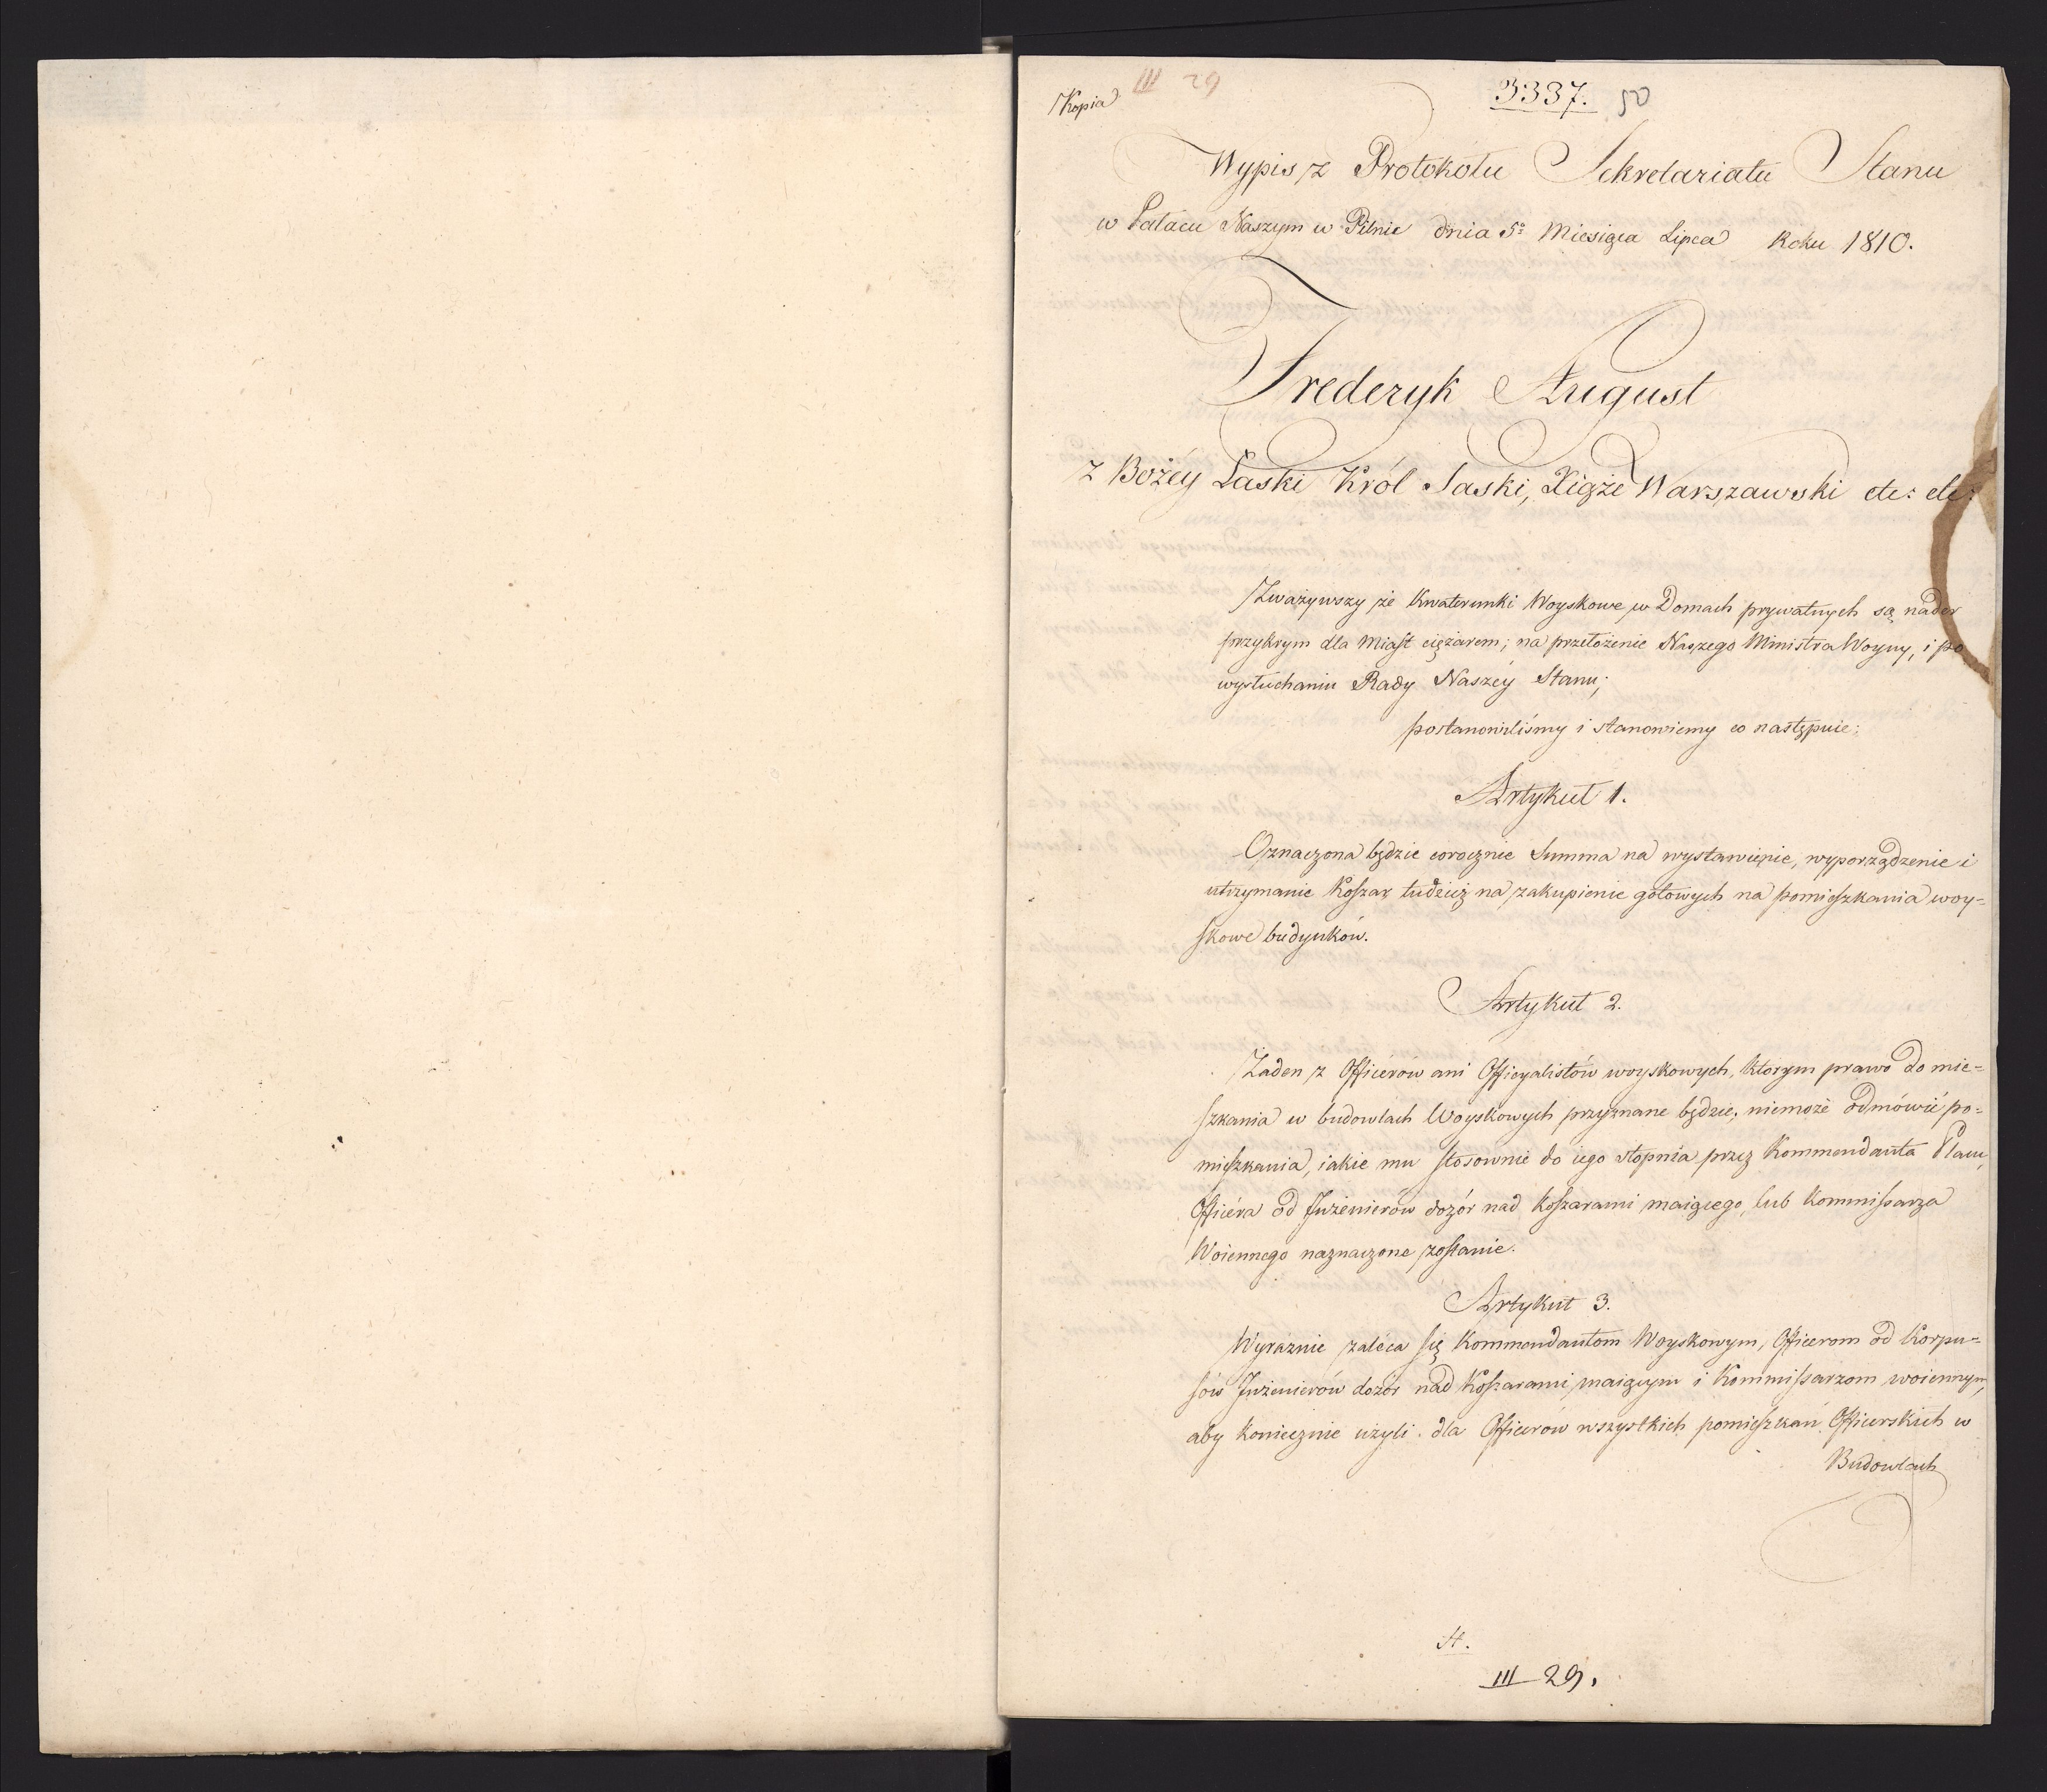 Kopia III 29 3337. 50
Wypis z Protokołu Sekretariatu Stanu
w Pałacu Naszym w Pilnie dnia 5º Miesiąca Lipca Roku 1810.
Frederyk August
z Bożéy Łaski Król Saski, Xiążę Warszawski etc: etc:
Zważywszy że Kwaterunki Woyskowe w Domach prywatnych są nader
przykrym dla Miast ciężarem; na przełożenie Naszego Ministra Woyny, i po
wysłuchaniu Rady Naszéy Stanu;
postanowiliśmy i stanowiemy co następuie:
Artykuł 1.
Oznaczona będzie corocznie Summa na wystawienie, wyporządzenie i
utrzymanie Koszar tudzież na zakupienie gotowych na pomieszkania woy=
skowe budynków.
Artykuł 2.
Żaden z Officérów ani Officyalistów woyskowych, którym prawo do mie=
szkania w budowlach Woyskowych przyznane będzie, niemoże odmówić po=
mieszkania, iakie mu stosownie do iego stopnia przez Kommendanta Placu,
Officéra od Inżenierów dozór nad Koszarami maiącego, lub Kommissarza
Woiennego naznaczone zostanie.
Artykuł 3.
Wyraźnie zaléca się Kommendantom Woyskowym, Officerom od Korpu=
sów Inżenierów dozór nad Koszarami maiącym i Kommissarzom woiennym,
aby koniecznie użyli dla Officerów wszystkich pomieszkań Officerskich w
Budowlach
A.
III 29.